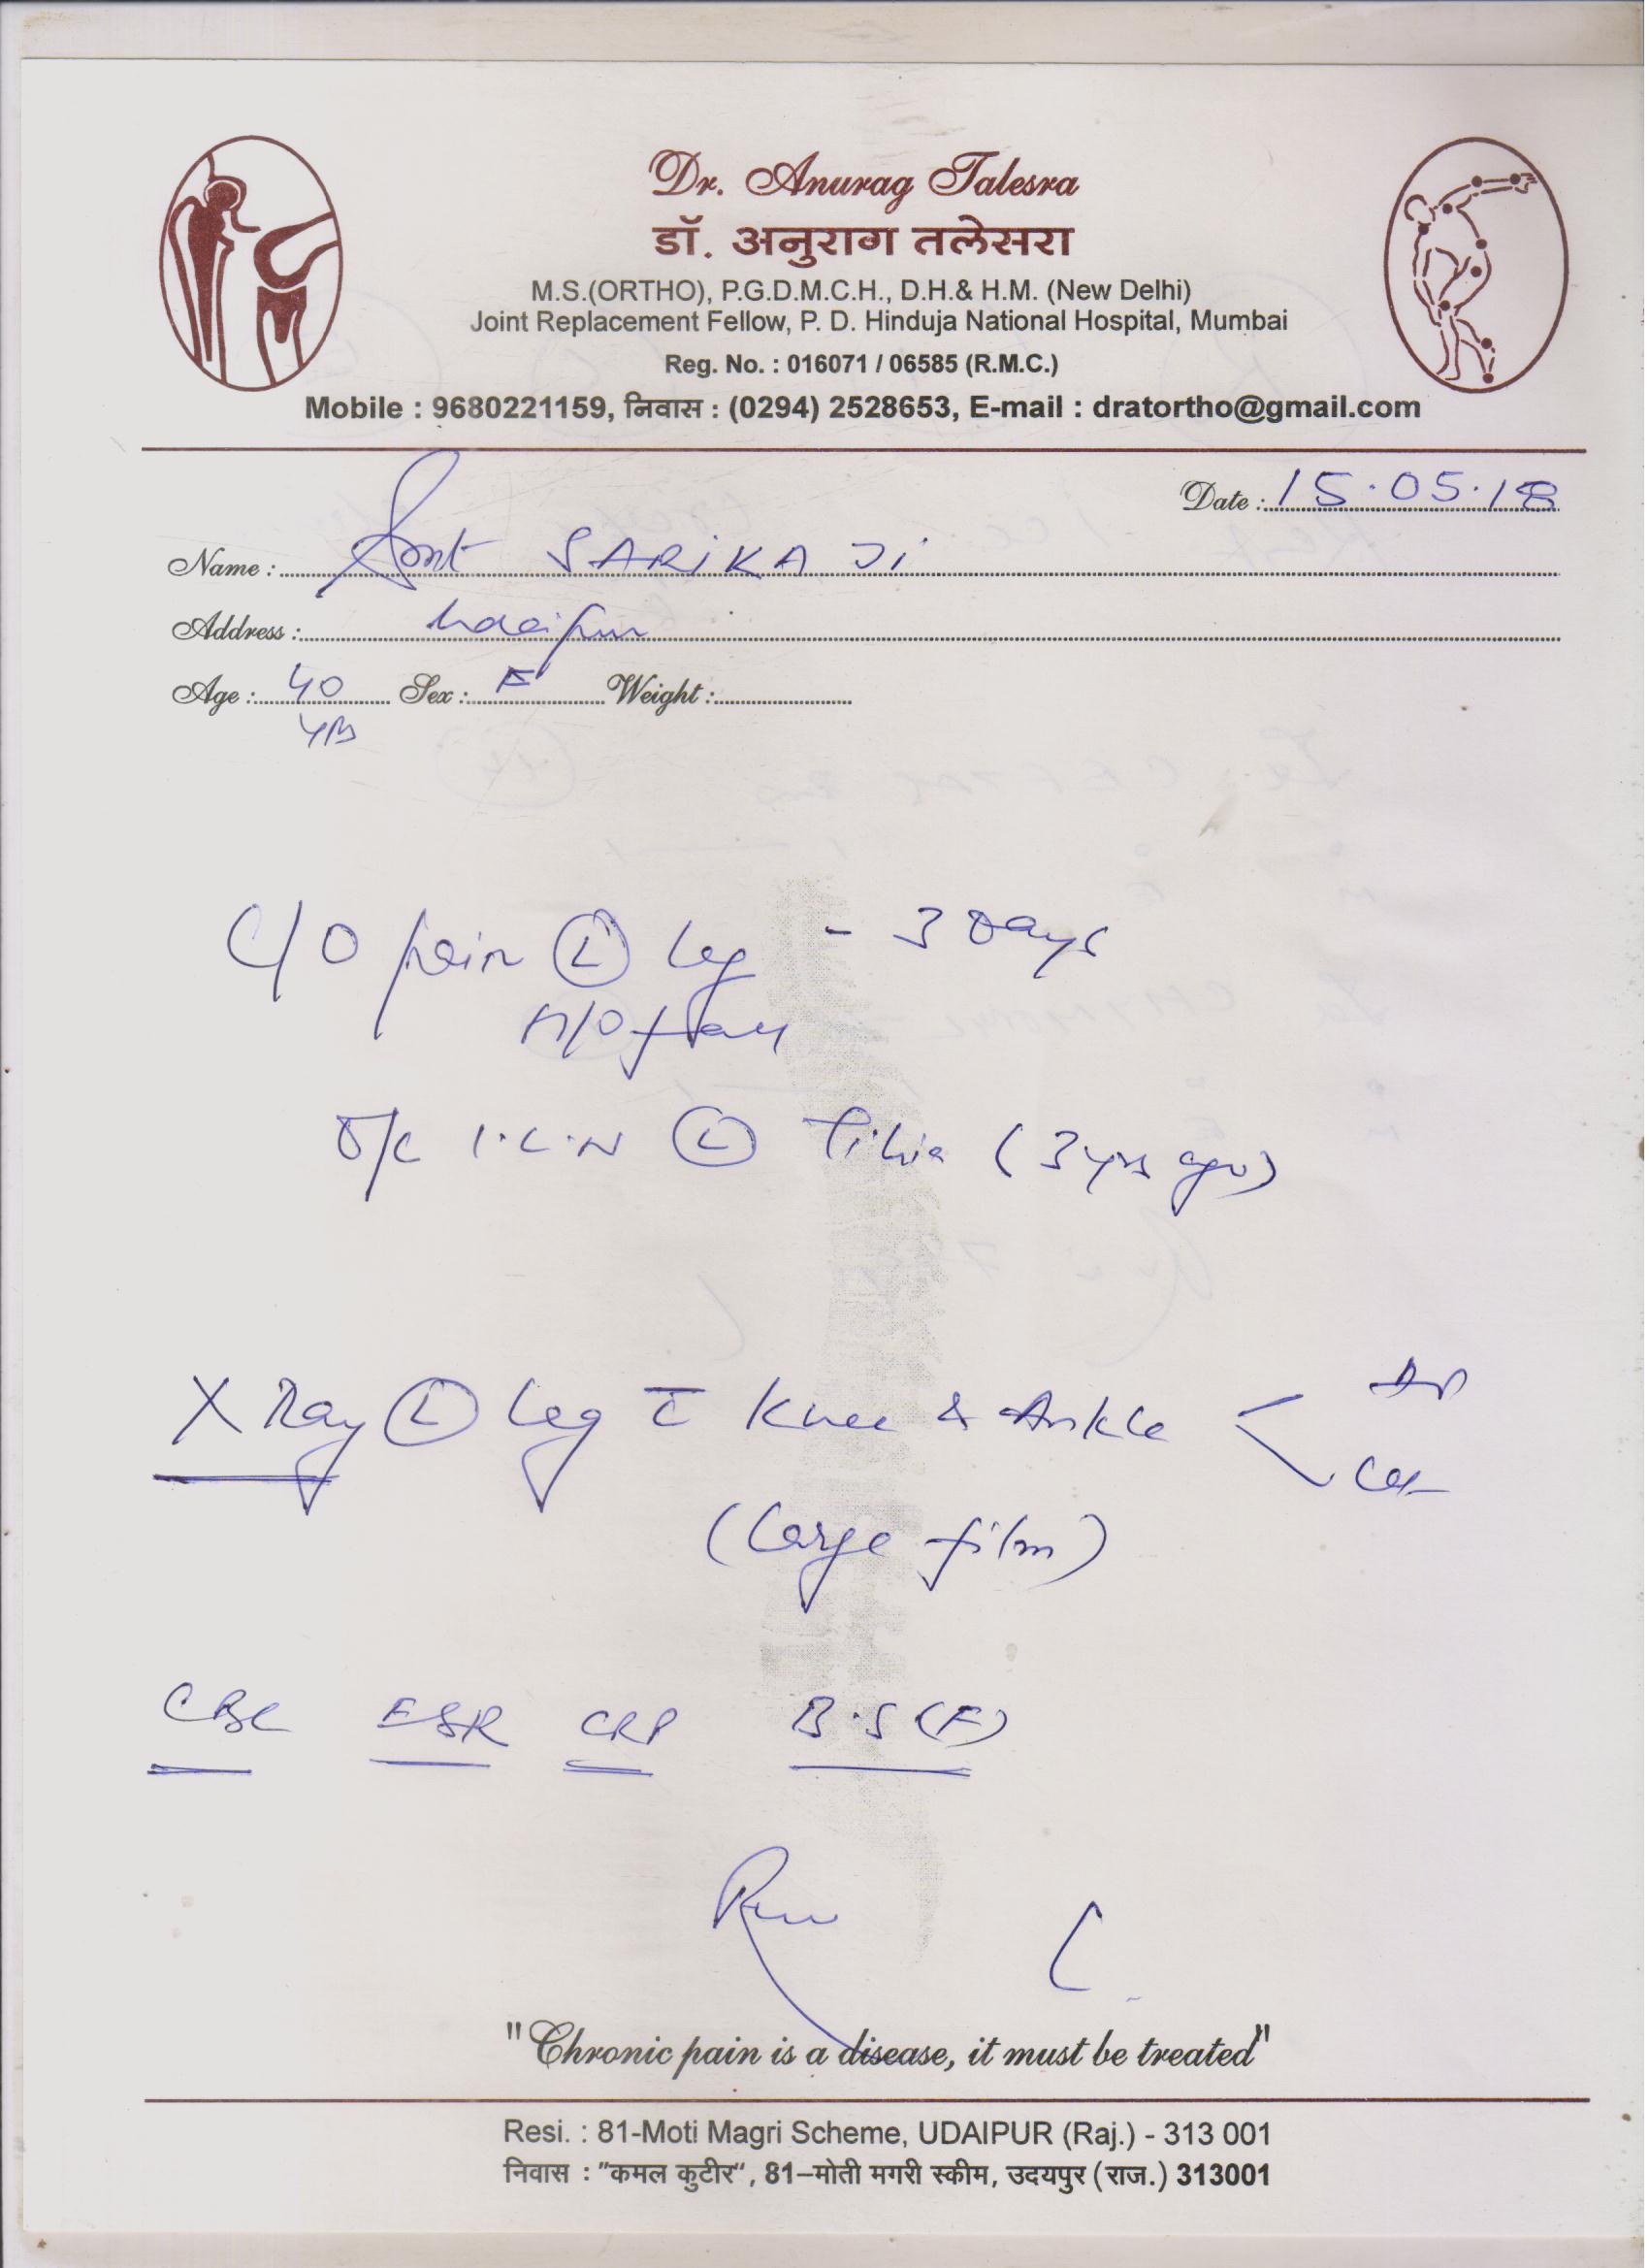 Dr. Anurag Talesra
डॉ. अनुराग तलेसरा
M.S.(ORTHO), P.G.D.M.C.H., D.H.& H.M. (New Delhi)
Joint Replacement Fellow, P. D. Hinduja National Hospital, Mumbai
Reg. No. : 016071 / 06585 (R.M.C.)
Mobile : 9680221159, निवास : (0294) 2528653, E-mail : dratortho@gmail.com
Date : 15.05.18
Name : Smt SARIKA Ji
Address : Udaipur
Age : 40 Sex : F Weight :
yrs
C/O pain (L) Leg - 3 Days
H/O fall
I.L.N (L) Tibia (3 yrs ago)
X Ray (L) Leg c̄ Knee & Ankle < AP
Lat
(Large film)
CBC ESR CRP B.S (F)
"Chronic pain is a disease, it must be treated"
Resi. : 81-Moti Magri Scheme, UDAIPUR (Raj.) - 313 001
निवास : "कमल कुटीर", 81–मोती मगरी स्कीम, उदयपुर (राज.) 313001